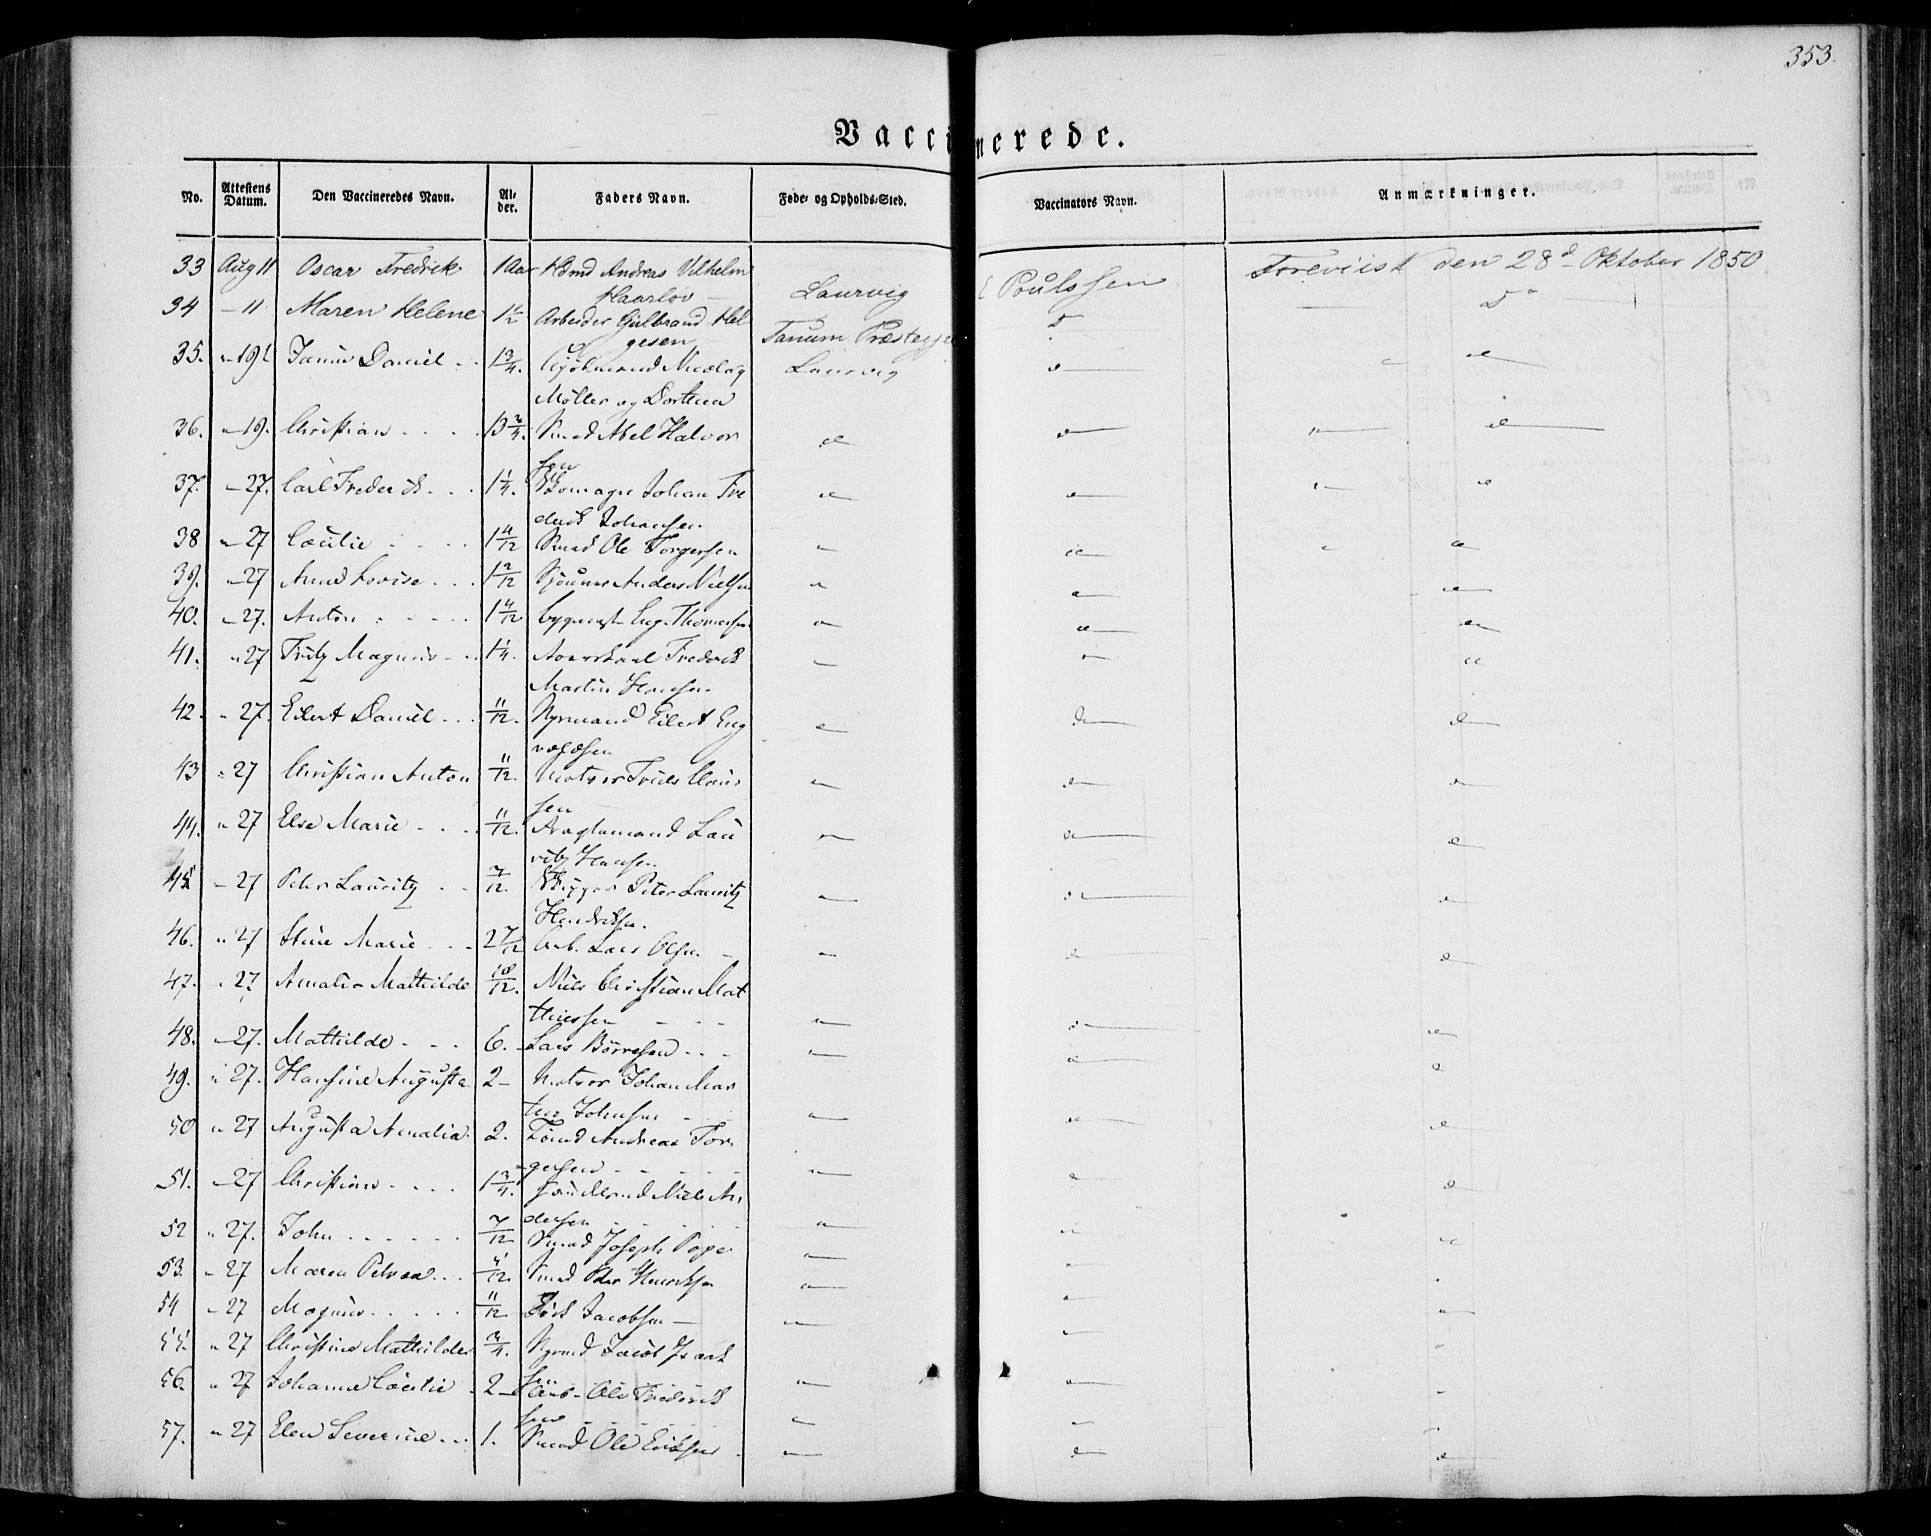 353.
Vaccinerede.
No. Attestens Datum. Den Vaccineredes Navn. Alder. Faders Navn. Føde- og Opholds-Sted. Vaccinators Navn. Anmærkninger.
33 Aug 11 Oscar Fredrik 1 Aar Hdmd Andreas Vilhelm
Haarlov — Laurvig Poulssen Foreviist den 28d Oktober 1850
34 — 11 Maren Helene 1 1/2 Arbeider Gulbrand Hel
gesen — Tanum Præstegje D D
35. " 19 Daniel 1 3/4. Nicolay Laurvig
Møller og Dorthea
36. " 19. Christian 13 3/4. Smed Abel Halvor
sen
37. — 27. Carl Frederik 1 1/4. Skomager Johan Fre
derik Johansen
38 " 27 Cæcilie 1 4/12 Smed Ole Torgersen
39. " 27 Anne Lovise 1 2/12 Anders Nielsen
40. " 27. Anton 1 4/12 Thomesen
41. " 27 Fritz Magnus 1 1/4. Frederik
Martin Hansen
42. " 27. Eilert Daniel 11/12. Eilert Eng
43 " 27 Christian Anton 11/12. Matros Truls Claus
sen
44. " 27 Else Marie 11/12. Lau
ritz Hansen
45 — 27 Peter Lauritz 7/12. Peter Lauritz
Hendriksen.
46. " 27 Stine Marie 2 7/12 Arb. Lars Olsen
47. " 27. Amalia Mathilde 10/12. Niels Christian Mat
thiessen
48. — 27. Mathilde 6. Lars Børresen
49. " 27. Hansine Augusta 2 — Matros Johan Mar
tin Johnsen
50 " 27 Augusta Amalia 2. Tømd Andreas Tor
gersen
51. — 27 Christian 1 3/4. Niels An
dersen
52 " 27. John 7/12 Joseph Pape
53. " 27 Maren Petrea 4/12. Smed Peder Henriksen
54 " 27 Magnus 11/12 Jacobsen —
55. " 27 Christine Mathilde 3/4. Jacob Isaak
sen
56. " 27 Johanne Cæcilie 2 — Arb. Ole Frederik
sen
57. " 27 Elen Severine 1. Smed Ole Eriksen